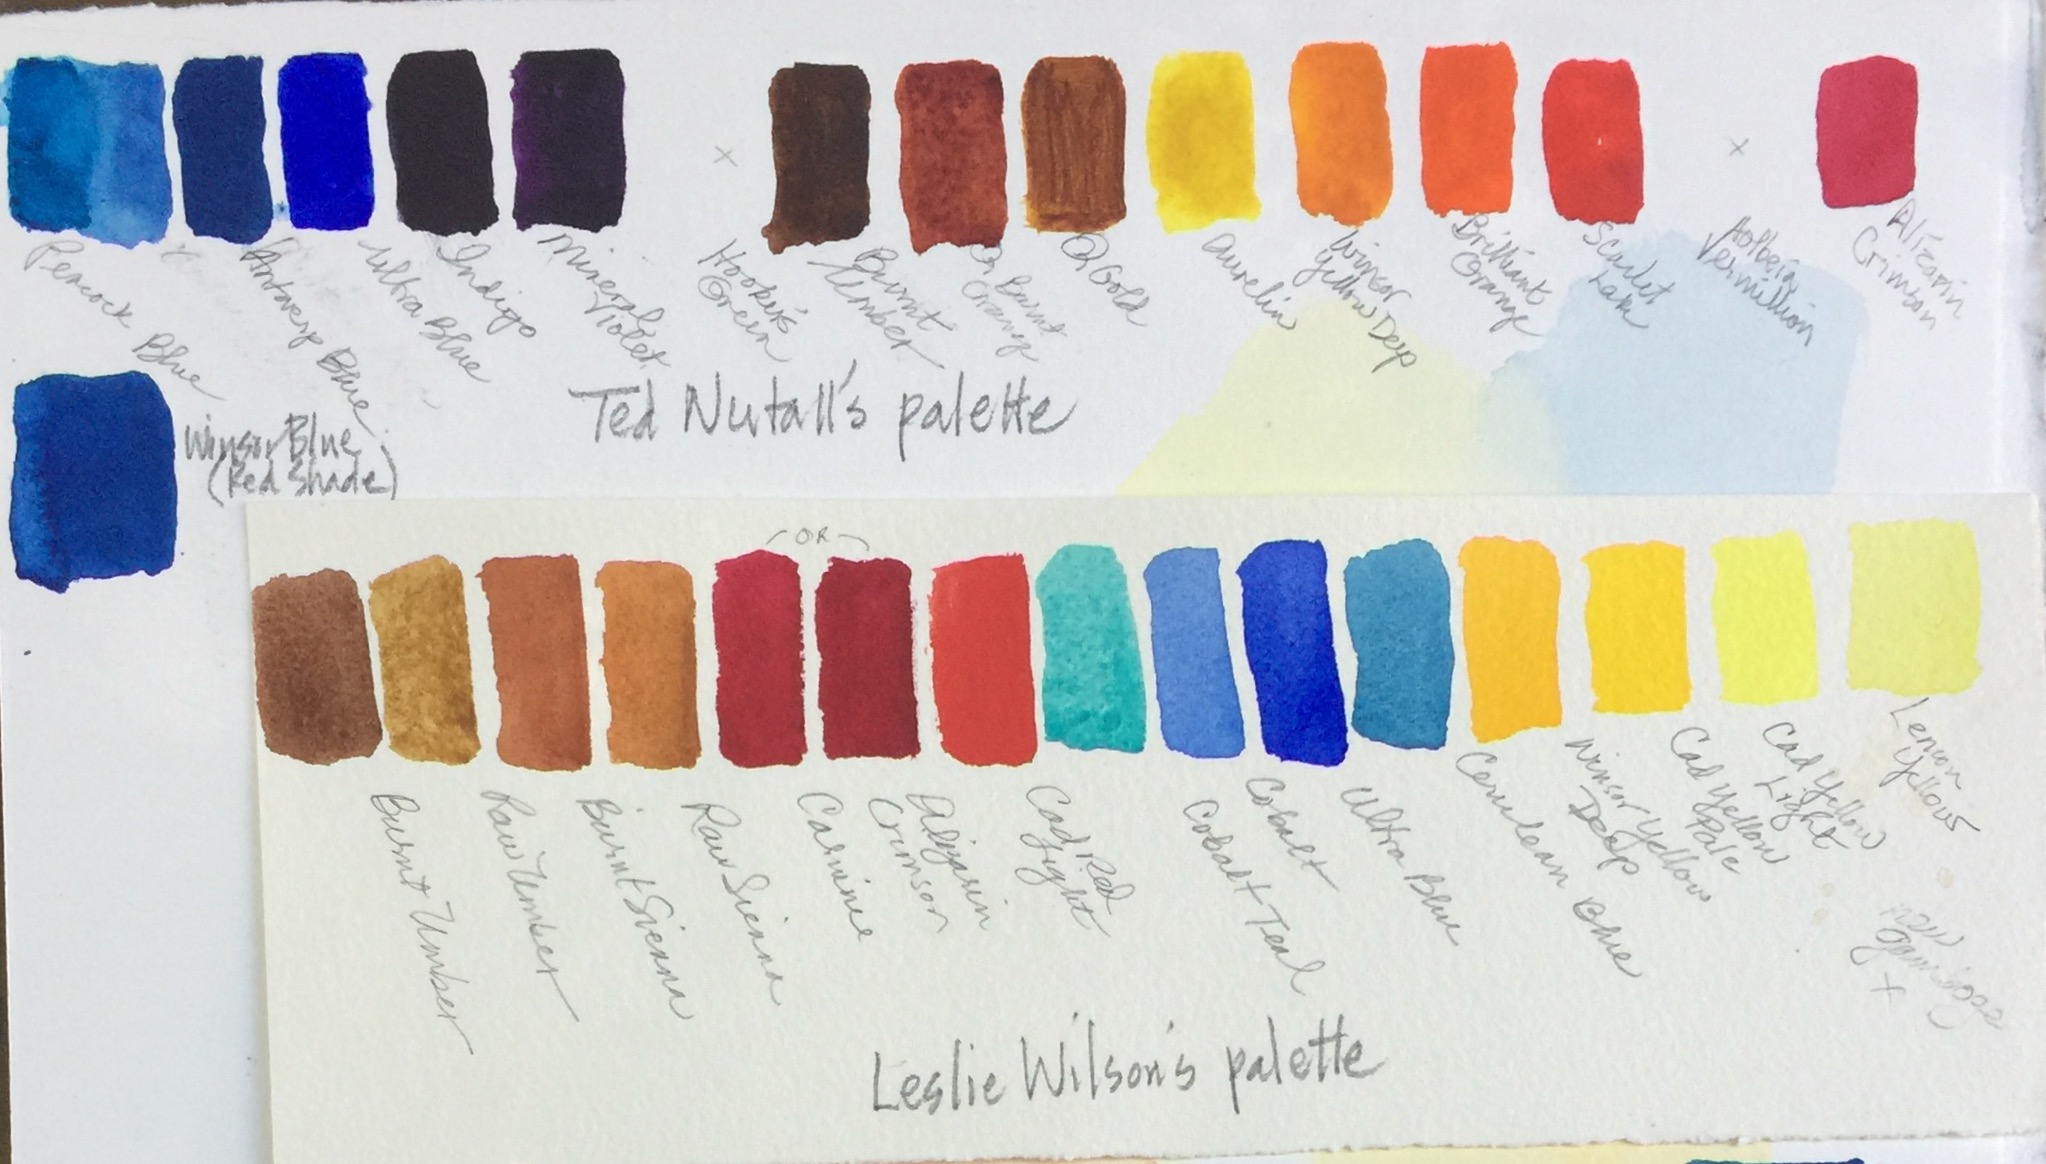 x
x
Peacock Blue
Antwerp Blue
Ultra Blue
Indigo
Mineral
Violet
Hooker's
Green
Burnt
Umber
Qn Burnt
Orange
Q Gold
Aurelin
Winsor
Yellow Deep
Brilliant
Orange
Scarlet
Lake
Holbein
Vermillion
Alizarin
Crimson
Ted Nutall's palette
Winsor Blue
(Red Shade)
- OR -
Burnt Umber
Raw Umber
Burnt Sienna
Raw Sienna
Carmine
Alizarin
Crimson
Cad Red
Light
Cobalt Teal
Cobalt
Ultra Blue
Cerulean Blue
Winsor Yellow
Deep
Cad Yellow
Pale
Cad Yellow
Light
Lemon
Yellow
new
gamboge
x
Leslie Wilson's palette